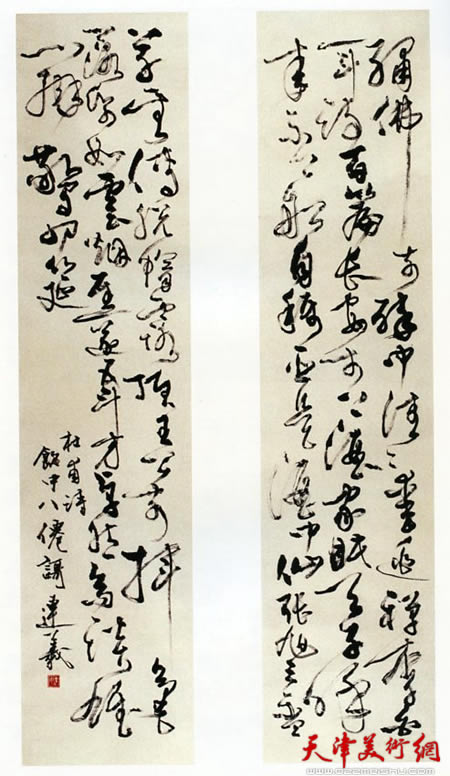 繡佛前醉中往〻愛逃禪李白
一斗詩百篇長安市上酒家眠天子呼
來不上船自稱臣是酒中仙張旭三盃
草聖傳脫帽露頂王公前揮毫
落紙如雲煙焦遂五斗方卓然高談雄
辯驚四筵
杜甫詩
飲中八僊謌 連羲
天津美術網